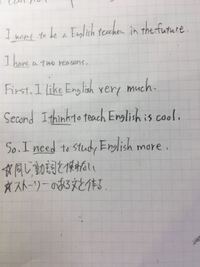 I want to be a English teacher in the future.
I have a two reasons.
First, I like English very much.
Second I think to teach English is cool.
So, I need to study English more.
☆同じ動詞を使わない
☆ストーリーのある文を作る